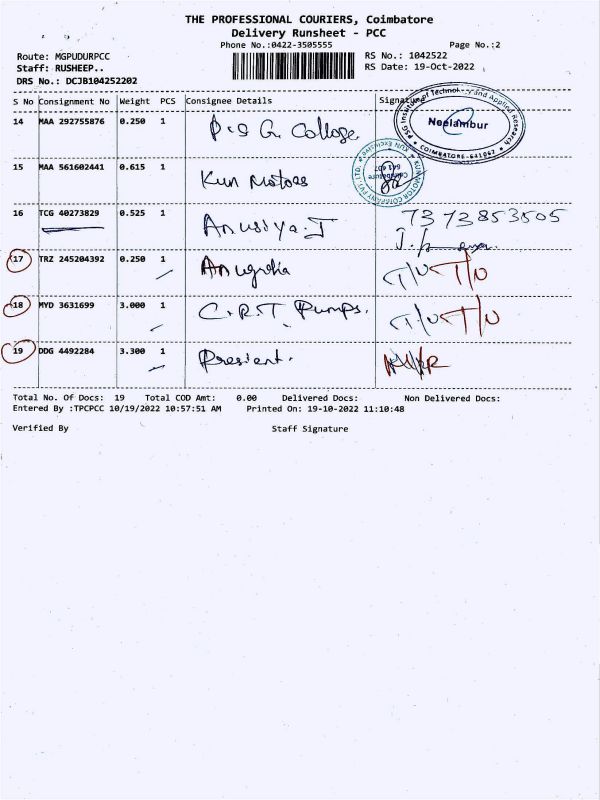 THE PROFESSIONAL COURIERS, Coimbatore
Delivery Runsheet - PCC
Phone No.:0422-3505555 Page No.:2
Route: MGPUDURPCC RS No.: 1042522
Staff: RUSHEEP.. RS Date: 19-Oct-2022
DRS No.: DCJB104252202
S No Consignment No Weight PCS Consignee Details Signature
14 MAA 292755876 0.250 1 P.S G. College
PSG Institute of Technology and Applied Research
Neelambur
COIMBATORE-641062
15 MAA 561602441 0.615 1 Kun Motors
KUN MOTOR COMPANY PVT. LTD.
Coimbatore
16 TCG 40273829 0.525 1 Anusiya.J 7373853505
17 TRZ 245204392 0.250 1 T/U T/U
18 MYD 3631699 3.000 1 C.R.T Pumps. T/U T/U
19 DDG 4492284 3.300 1
Total No. Of Docs: 19 Total COD Amt: 0.00 Delivered Docs: Non Delivered Docs:
Entered By :TPCPCC 10/19/2022 10:57:51 AM Printed On: 19-10-2022 11:10:48
Verified By Staff Signature